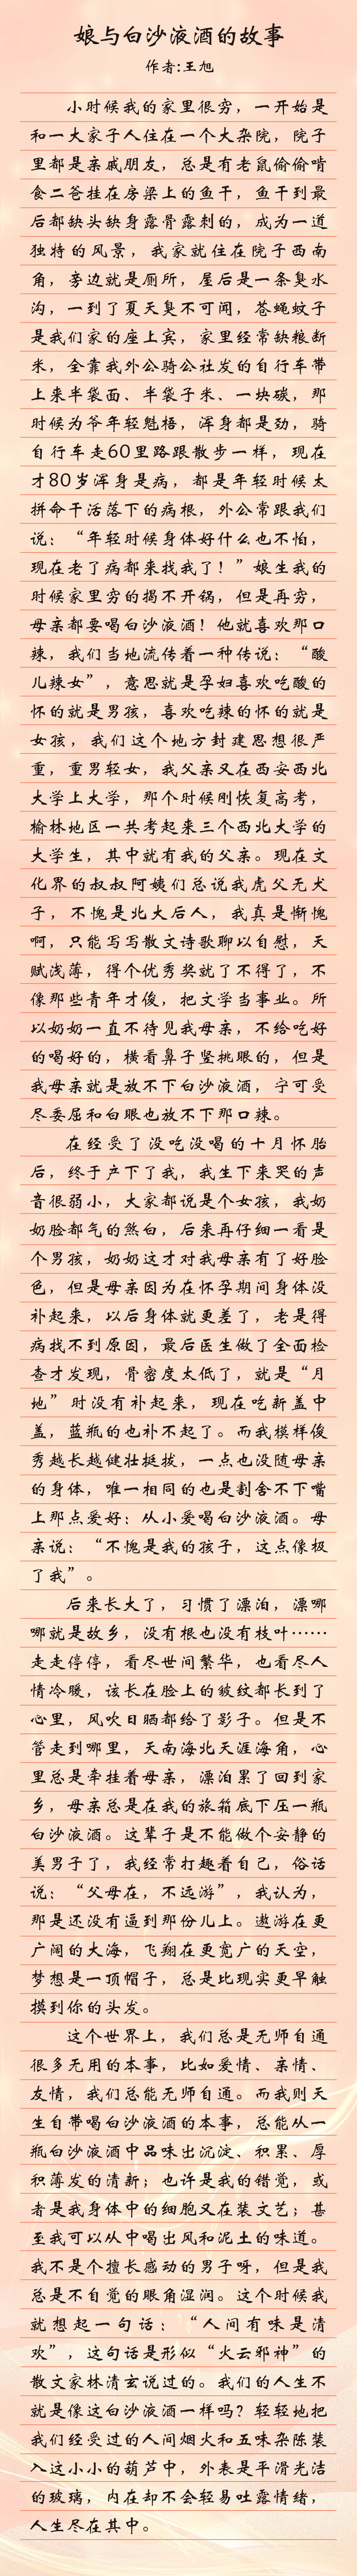 娘与白沙液酒的故事
作者:王旭
小时候我的家里很穷，一开始是
和一大家子人住在一个大杂院，院子
里都是亲戚朋友，总是有老鼠偷偷啃
食二爸挂在房梁上的鱼干，鱼干到最
后都缺头缺身露骨露刺的，成为一道
独特的风景，我家就住在院子西南
角，旁边就是厕所，屋后是一条臭水
沟，一到了夏天臭不可闻，苍蝇蚊子
是我们家的座上宾，家里经常缺粮断
米，全靠我外公骑公社发的自行车带
上来半袋面、半袋子米、一块碳，那
时候为爷年轻魁梧，浑身都是劲，骑
自行车走60里路跟散步一样，现在
才80岁浑身是病，都是年轻时候太
拼命干活落下的病根，外公常跟我们
说：“年轻时候身体好什么也不怕，
现在老了病都来找我了！”娘生我的
时候家里穷的揭不开锅，但是再穷，
母亲都要喝白沙液酒！他就喜欢那口
辣，我们当地流传着一种传说：“酸
儿辣女”，意思就是孕妇喜欢吃酸的
怀的就是男孩，喜欢吃辣的怀的就是
女孩，我们这个地方封建思想很严
重，重男轻女，我父亲又在西安西北
大学上大学，那个时候刚恢复高考，
榆林地区一共考起来三个西北大学的
大学生，其中就有我的父亲。现在文
化界的叔叔阿姨们总说我虎父无犬
子，不愧是北大后人，我真是惭愧
啊，只能写写散文诗歌聊以自慰，天
赋浅薄，得个优秀奖就了不得了，不
像那些青年才俊，把文学当事业。所
以奶奶一直不待见我母亲，不给吃好
的喝好的，横看鼻子竖挑眼的，但是
我母亲就是放不下白沙液酒，宁可受
尽委屈和白眼也放不下那口辣。
在经受了没吃没喝的十月怀胎
后，终于产下了我，我生下来哭的声
音很弱小，大家都说是个女孩，我奶
奶脸都气的煞白，后来再仔细一看是
个男孩，奶奶这才对我母亲有了好脸
色，但是母亲因为在怀孕期间身体没
补起来，以后身体就更差了，老是得
病找不到原因，最后医生做了全面检
查才发现，骨密度太低了，就是“月
地”时没有补起来，现在吃新盖中
盖，蓝瓶的也补不起了。而我模样俊
秀越长越健壮挺拔，一点也没随母亲
的身体，唯一相同的也是割舍不下嘴
上那点爱好：从小爱喝白沙液酒。母
亲说：“不愧是我的孩子，这点像极
了我”。
后来长大了，习惯了漂泊，漂哪
哪就是故乡，没有根也没有枝叶……
走走停停，看尽世间繁华，也看尽人
情冷暖，该长在脸上的皱纹都长到了
心里，风吹日晒都给了影子。但是不
管走到哪里，天南海北天涯海角，心
里总是牵挂着母亲，漂泊累了回到家
乡，母亲总是在我的旅箱底下压一瓶
白沙液酒。这辈子是不能做个安静的
美男子了，我经常打趣着自己，俗话
说：“父母在，不远游”，我认为，
那是还没有逼到那份儿上。遨游在更
广阔的大海，飞翔在更宽广的天空，
梦想是一顶帽子，总是比现实更早触
摸到你的头发。
这个世界上，我们总是无师自通
很多无用的本事，比如爱情、亲情、
友情，我们总能无师自通。而我则天
生自带喝白沙液酒的本事，总能从一
瓶白沙液酒中品味出沉淀、积累、厚
积薄发的清新；也许是我的错觉，或
者是我身体中的细胞又在装文艺；甚
至我可以从中喝出风和泥土的味道。
我不是个擅长感动的男子呀，但是我
总是不自觉的眼角湿润。这个时候我
就想起一句话：“人间有味是清
欢”，这句话是形似“火云邪神”的
散文家林清玄说过的。我们的人生不
就是像这白沙液酒一样吗？轻轻地把
我们经受过的人间烟火和五味杂陈装
入这小小的葫芦中，外表是平滑光洁
的玻璃，内在却不会轻易吐露情绪，
人生尽在其中。